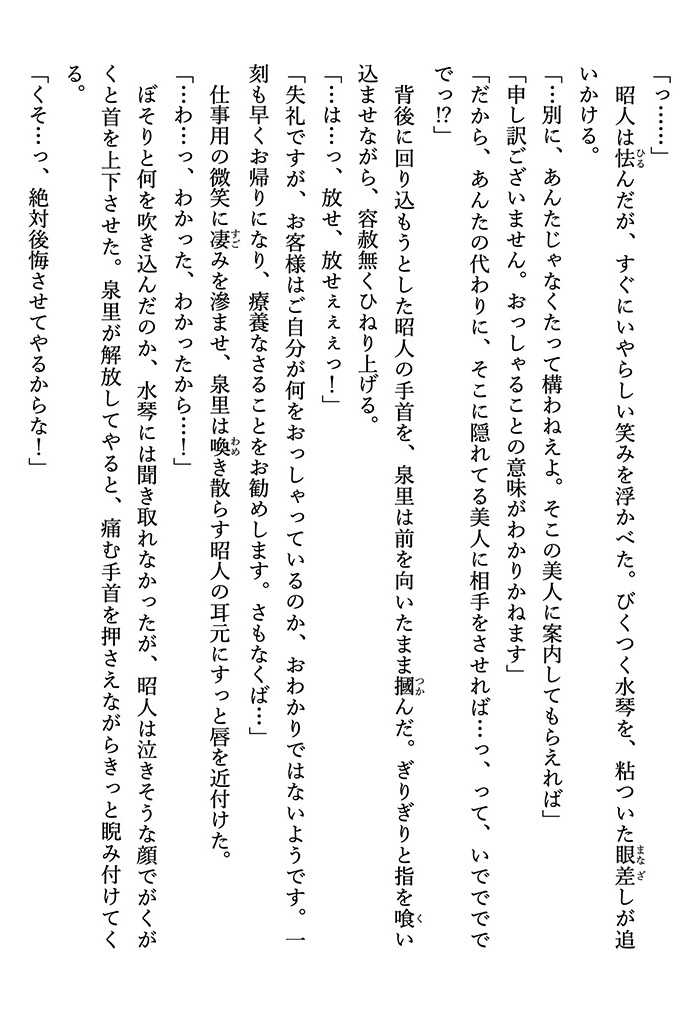 「っ……」
　昭人は怯んだが、すぐにいやらしい笑みを浮かべた。びくつく水琴を、粘ついた眼差しが追
いかける。
「…別に、あんたじゃなくたって構わねえよ。そこの美人に案内してもらえれば」
「申し訳ございません。おっしゃることの意味がわかりかねます」
「だから、あんたの代わりに、そこに隠れてる美人に相手をさせれば…っ、って、いでででで
でっ!?」
　背後に回り込もうとした昭人の手首を、泉里は前を向いたまま摑んだ。ぎりぎりと指を喰い
込ませながら、容赦無くひねり上げる。
「…は…っ、放せ、放せぇぇぇっ！」
「失礼ですが、お客様はご自分が何をおっしゃっているのか、おわかりではないようです。一
刻も早くお帰りになり、療養なさることをお勧めします。さもなくば…」
　仕事用の微笑に凄みを滲ませ、泉里は喚き散らす昭人の耳元にすっと唇を近付けた。
「…わ…っ、わかった、わかったから…！」
　ぼそりと何を吹き込んだのか、水琴には聞き取れなかったが、昭人は泣きそうな顔でがくが
くと首を上下させた。泉里が解放してやると、痛む手首を押さえながらきっと睨み付けてく
る。
「くそ…っ、絶対後悔させてやるからな！」